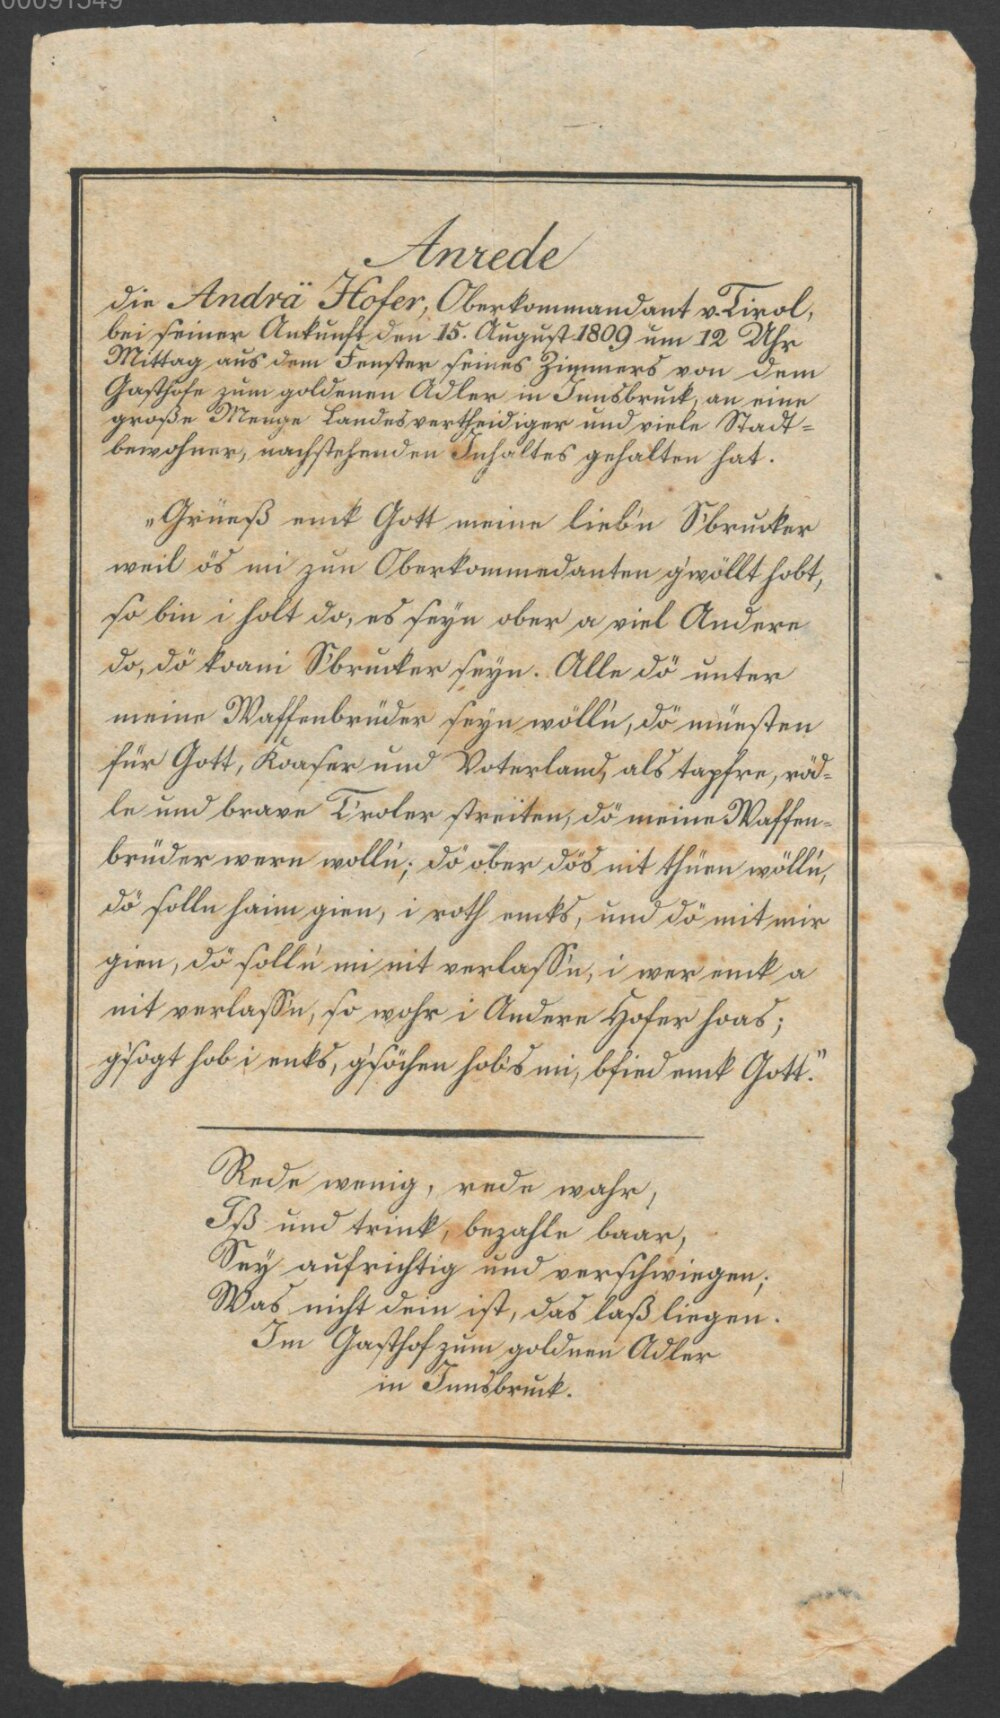 00091549
Anrede
die Andrä Hofer, Oberkommandant v. Tirol,
bei seiner Ankunft den 15. August 1809 um 12 Uhr
Mittag aus dem Fenster seines Zimmers von dem
Gasthofe zum goldenen Adler in Innsbruck, an eine
große Menge Landesvertheidiger und viele Stadt=
bewohner, nachstehenden Inhaltes gehalten hat.
„Grüeß enck Gott meine lieb'n S'brucker
weil ös mi zun Oberkommedanten g'wöllt hobt,
so bin i holt do, es seyn ober a viel Andere
do, dö koani S'brucker seyn. Alle dö unter
meine Waffenbrüder seyn wölln, dö müesten
für Gott, Koaser und Voterland, als tapfre, röd=
le und brave T'roler streiten, dö meine Waffen=
brüder wern wolln; dö ober dös nit thüen wölln,
dö solln haim gien, i roth enks, und dö mit mir
gien, dö solln mi nit verlass'n, i wer enck a
nit verlass'n, so wohr i Andere Hofer hoas;
g'sogt hob i enks, g'söchen hobs mi, bfied enck Gott."
Rede wenig, rede wahr,
Iß und trink, bezahle baar,
Sey aufrichtig und verschwiegen;
Was nicht dein ist, das laß liegen.
Im Gasthof zum goldnen Adler
in Innsbruck.